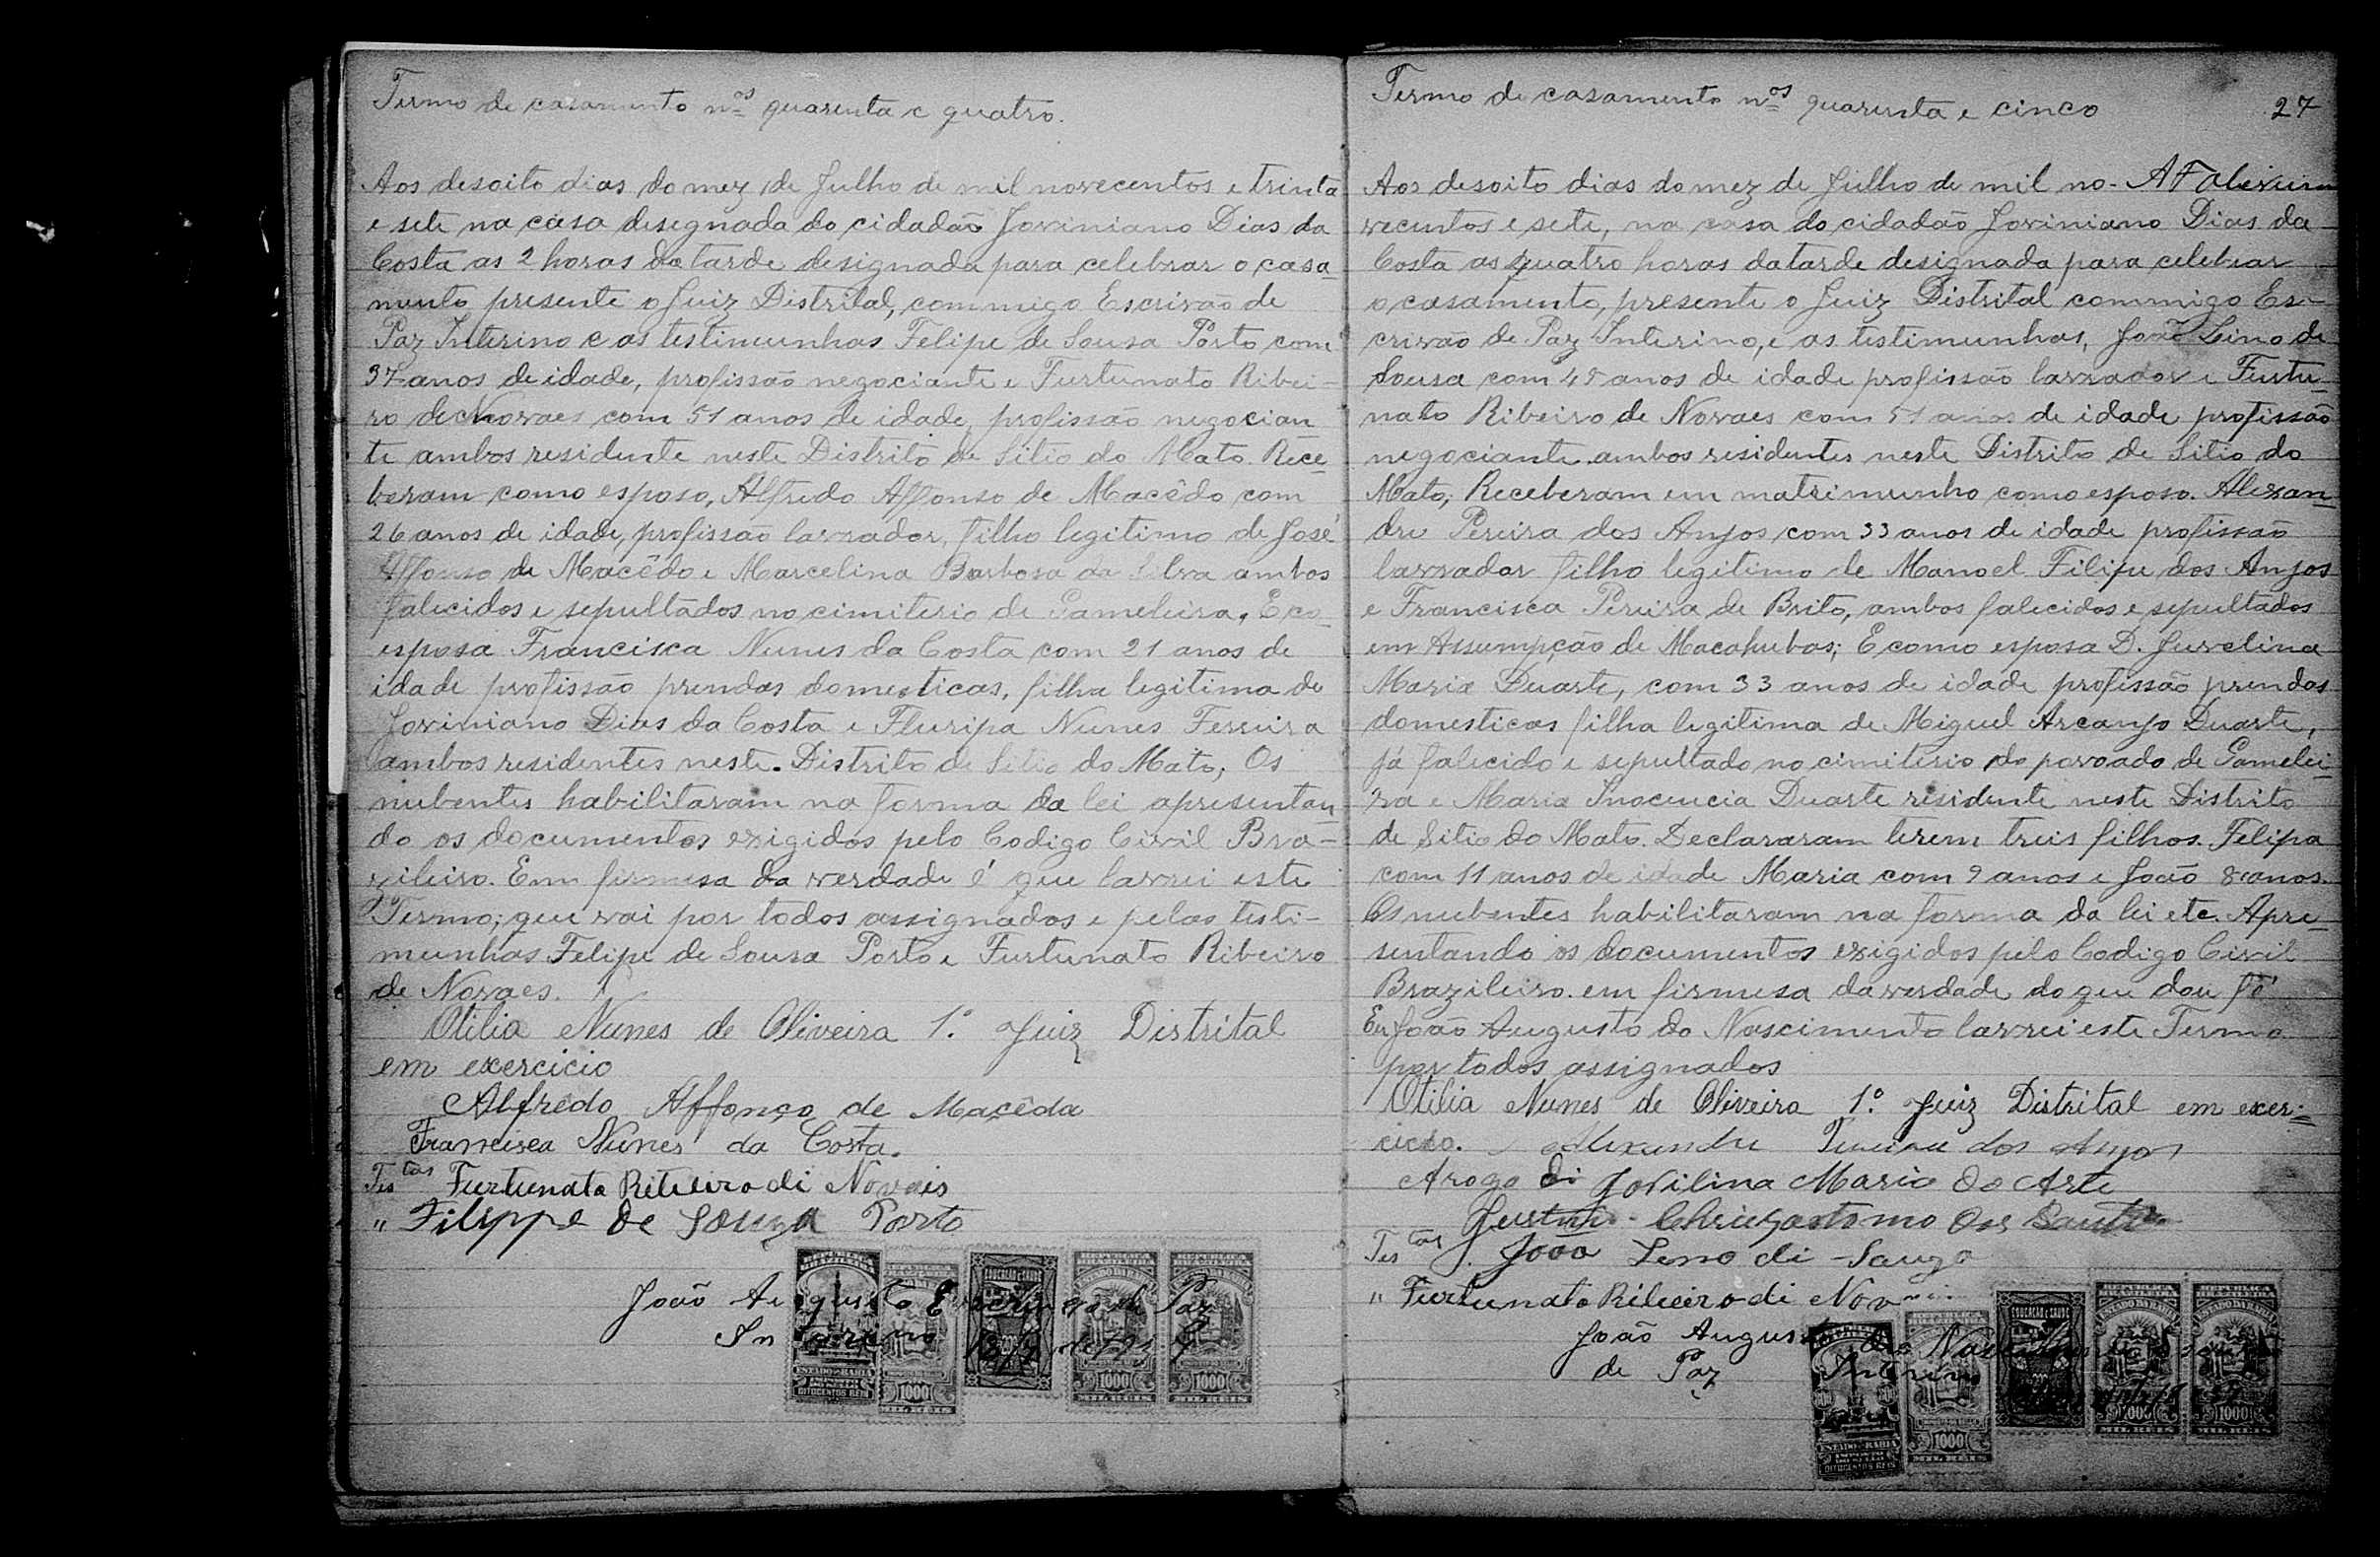 Termo de casamento nos quarenta e quatro.
Aos desoito dias do mez de Julho de mil novecentos e trinta
e sete na casa designada do cidadão Joviniano Dias da
Costa as 2 horas da tarde designada para celebrar o casa
mento presente o Juiz Distrital, commigo Escrivão de
Paz Interino e as testimunhas Felipe de Sousa Porto com
37 anos de idade, profissão negociante e Furtunato Ribei-
ro de Novaes com 51 anos de idade, profissão negocian
te ambos residente neste Distrito de Sitio do Mato. Rece
beram como esposo, Alfredo Affonso de Macêdo com
26 anos de idade, profissão lavrador, filho legitimo de José
Affonso de Macêdo e Marcelina Barbosa da Silva ambos
falecidos e sepultados no cimiterio de Gameleira. E co
esposa Francisca Nunes da Costa com 21 anos de
idade profissão prendas domesticas, filha legitima de
Joviniano Dias da Costa e Fluripa Nunes Ferreira
ambos residentes neste. Distrito de Sitio do Mato; Os
nubentes habilitaram na forma da lei apresentan
do os documentos exigidos pelo Codigo Civil Bra-
zileiro. Em firmesa da verdade é que lavrei este
Termo; que vai por todos assignados e pelas testi-
munhas Felipe de Sousa Porto e Furtunato Ribeiro
de Novaes.
Otilia Nunes de Oliveira 1.º Juiz Distrital
em exercicio
Alfredo Affonço de Macêda
Francisca Nunes da Costa.
Testas Furtunato Ribeiro di Novais
" Filippe de Souza Porto
João Augusto Escrivão de Paz
Interino
Termo de casamento nos quarenta e cinco
27
Aos desoito dias do mez de Julho de mil no-
vecentos e sete, na casa do cidadão Joviniano Dias da
Costa as quatro horas da tarde designada para celebrar
o casamento, presente o Juiz Distrital commigo Es-
crivão de Paz Interino, e as testimunhas, João Leino de
Sousa com 45 anos de idade profissão lavrador e Furtu-
nato Ribeiro de Novaes com 51 anos de idade profissão
negociante ambos residentes neste Distrito de Sitio do
Mato; Receberam em matrimunho como esposo. Alexan
dre Pereira dos Anjos com 33 anos de idade profissão
lavrador filho legitimo de Manoel Filipe dos Anjos
e Francisca Pereira de Brito, ambos falecidos e sepultados
em Assumpção de Macahubas; E como esposa D. Juvelina
Maria Duarte, com 33 anos de idade profissão prendas
domesticas filha legitima de Miguel Arcanjo Duarte,
já falecido e sepultado no cimiterio do povoado de Gamelei-
ra e Maria Inocencia Duarte residente neste Distrito
de Sitio do Mato. Declararam terem treis filhos. Felipa
com 11 anos de idade Maria com 9 anos e João 8 anos.
Os nubentes habilitaram na forma da lei etc. Apre-
sentando os documentos exigidos pelo Codigo Civil
Brazileiro. em firmesa da verdade do que dou fé
Eu João Augusto do Nascimento lavrei este Termo
por todos assignados
Otilia Nunes de Oliveira 1.º Juiz Distrital em exer-
cicio. Alexandre Pereira dos Anjos
Arogo di Jovilina Maria do Arte
Testas João Leno di Souza
" Furtunato Ribeiro di
João Augusto do Nascimento
de Paz Interino
ESTADO DA BAHIA
EDUCAÇÃO E SAUDE
1000
MIL REIS